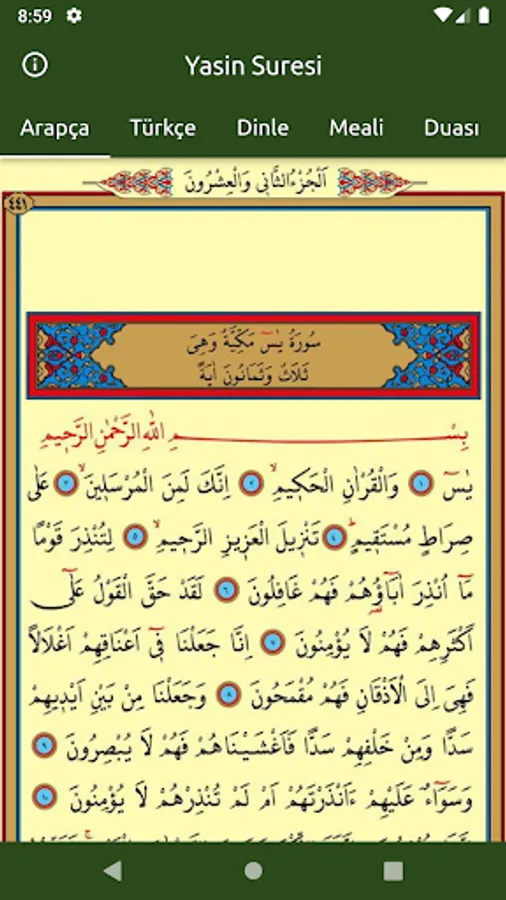 8:59
Yasin Suresi
Arapça Türkçe Dinle Meali Duası
اَلْجُزْءُ الثَّانِي وَالْعِشْرُونَ
٤٤١
سُورَةُ يٰسٓ مَكِّيَّةٌ وَهِىَ
ثَلَاثٌ وَثَمَانُونَ اٰيَةً
بِسْمِ اللّٰهِ الرَّحْمٰنِ الرَّحِيمِ
يٰسٓ ١ وَالْقُرْاٰنِ الْحَكِيمِۙ ٢ اِنَّكَ لَمِنَ الْمُرْسَلِينَۙ ٣ عَلٰى
صِرَاطٍ مُسْتَقِيمٍۜ ٤ تَنْزِيلَ الْعَزِيزِ الرَّحِيمِۙ ٥ لِتُنْذِرَ قَوْمًا
مَٓا اُنْذِرَ اٰبَٓاؤُ۬هُمْ فَهُمْ غَافِلُونَ ٦ لَقَدْ حَقَّ الْقَوْلُ عَلٰٓى
اَكْثَرِهِمْ فَهُمْ لَا يُؤْمِنُونَ ٧ اِنَّا جَعَلْنَا فِٓى اَعْنَاقِهِمْ اَغْلَالًا
فَهِىَ اِلَى الْاَذْقَانِ فَهُمْ مُقْمَحُونَ ٨ وَجَعَلْنَا مِنْ بَيْنِ اَيْدِيهِمْ
سَدًّا وَمِنْ خَلْفِهِمْ سَدًّا فَاَغْشَيْنَاهُمْ فَهُمْ لَا يُبْصِرُونَ ٩
وَسَوَٓاءٌ عَلَيْهِمْ ءَاَنْذَرْتَهُمْ اَمْ لَمْ تُنْذِرْهُمْ لَا يُؤْمِنُونَ ١٠